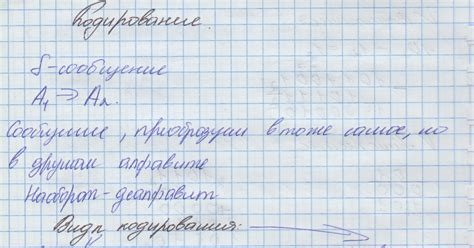 Кодирование.
S-сообщение
A₁ → A₂.
Сообщение, преобразуем в тоже самое, но
в другом алфавите
Наоборот-
Виды кодирования: